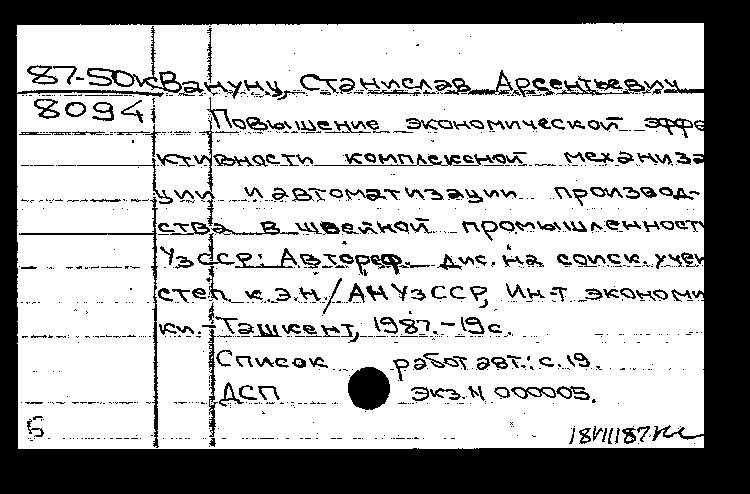 87-50к Вануну, Станислав Арсентьевич
8094 Повышение экономической эффе
ктивности комплексной механиза
ции и автоматизации производ-
ства в швейной промышленност
УзССР: Автореф. дис. на соиск. учен
степ к.э.н./АН УзССР, Ин-т экономи
ки.-Ташкент, 1987.-19с.
Список работ авт.: с.19.
ДСП экз.N 000005.
Б 18VIII87